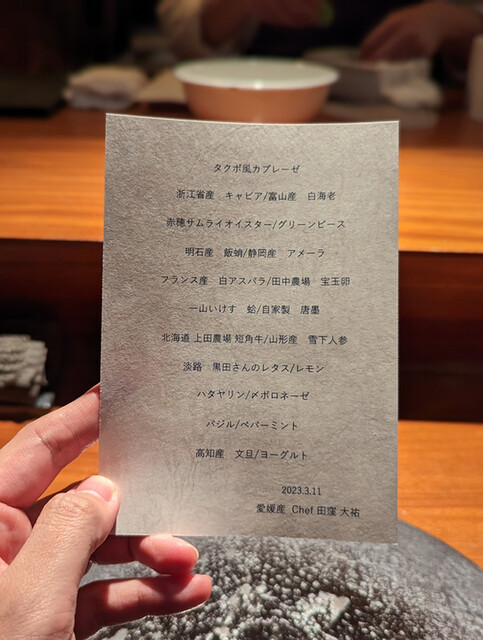 タクボ風カプレーゼ
浙江省産　キャビア/富山産　白海老
赤穂サムライオイスター/グリーンピース
明石産　飯蛸/静岡産　アメーラ
フランス産　白アスパラ/田中農場　宝玉卵
一山いけす　蛤/自家製　唐墨
北海道 上田農場 短角牛/山形産　雪下人参
淡路　黒田さんのレタス/レモン
ハタヤリン/〆ボロネーゼ
バジル/ペパーミント
高知産　文旦/ヨーグルト
2023.3.11
愛媛産　Chef 田窪 大祐